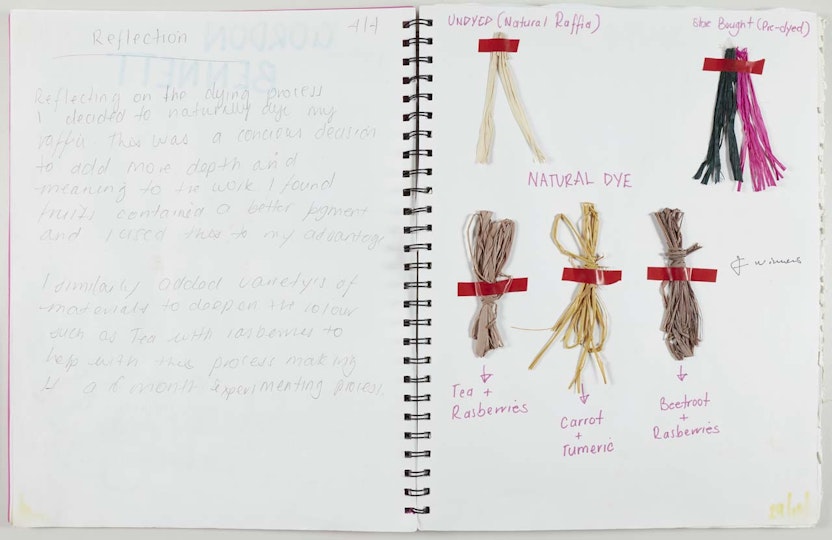 4/4
Reflection
GORDON
BENNETT
Reflecting on the dying process
I decided to naturally dye my
raffia this was a concious decision
to add more depth and
meaning to the work I found
fruits contained a better pigment
and I used this to my advantage
I similarly added varietys of
materials to deepen the colour
such as Tea with rasberries to
help with this process making
it a 6 month experimenting process.
UNDYED (Natural Raffia)
Bought (Pre-dyed)
NATURAL DYE
winners
Tea +
Rasberries
Carrot
+
Tumeric
Beetroot
+
Rasberries